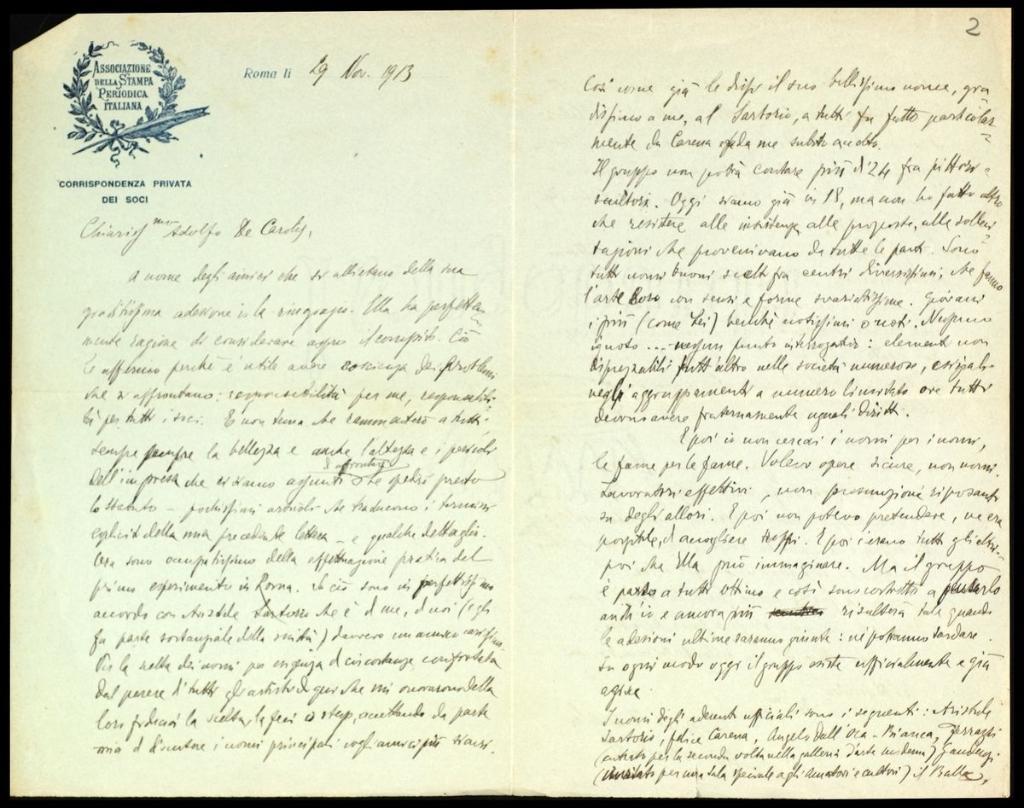 2
ASSOCIAZIONE
DELLA STAMPA
PERIODICA
ITALIANA
Roma li 29 Nov. 1913
CORRISPONDENZA PRIVATA
DEI SOCI
Chiariss mo Adolfo De Carolis,
A nome degli amici che si allietano della sua
graditissima adesione io la ringrazio. Ella ha perfetta=
mente ragione di considerare il compito. Ciò
le affermo perché è utile avere coscienza dei problemi
che si affrontano: responsabilità per me, responsabili=
tà per tutti i soci. E non tema che rammenterò a tutti
sempre la bellezza e anche l'altezza e i pericoli
dell'impresa che ci siamo Le spedirò presto
lo statuto – pochissimi articoli che traducono i termini
espliciti della mia precedente lettera – e qualche dettaglio.
Ora sono occupatissimo della effettuazione pratica del
primo esperimento in Roma. In ciò sono in perfettissimo
accordo con Aristide Sartorio che è di me, di noi (egli
fa parte sostanziale della società) davvero un amico carissimo.
Per la scelta dei nomi per esigenza di circostanze confortata
dal parere di tutti gli artisti di qui che mi onorarono della
loro fiducia la scelta la feci io stesso, accettando da parte
mia di discutere i nomi principali cogli amici più vicini.
Così come già le dissi il suo bellissimo nome, gra=
dissimo a me, al Sartorio, a tutti fu fatto particolar=
mente da Carena e da me subito accolto.
Il gruppo non potrà contare più di 24 fra pittori e
scultori. Oggi siamo già in 18, ma non ho fatto altro
che resistere alle insistenze alle proposte, alle solleci=
tazioni che provenivano da tutte le parti. Sono
tutti nomi buoni scelti fra centri diversissimi, che fanno
l'arte loro con sensi e forme svariatissime. Giovani
i più (come Lei) benché notissimi o noti. Nessuno
ignoto ... nessun punto interrogativo: elementi non
disprezzabili tutt'altro nelle società numerose, esiziali
negli aggruppamenti a numero limitato ove tutti
devono avere fraternamente uguali diritti.
E poi io non cercai i nomi per i nomi,
le fame per le fame. Volevo opere sicure, non nomi.
Lavoratori effettivi, non presunzione riposante
su degli allori. E poi non potevo pretendere, né era
possibile, d'accogliere troppi. E poi c'erano tutti gli altri
poi che Ella può immaginare. Ma il gruppo
è parso a tutti ottimo e così son costretto a
anch'io e ancora più risulterà tale quando
le adesioni ultime saranno giunte: né potranno tardare.
In ogni modo oggi il gruppo esiste ufficialmente e già
agisce.
I nomi degli aderenti ufficiali sono i seguenti: Aristide
Sartorio, Felice Carena, Angelo Dall'Oca-Bianca, Ferraguti
(invitato per la seconda volta nella galleria d'arte moderna) Gaudenzi
(invitato per una sala speciale agli amatori e cultori) il Balla,